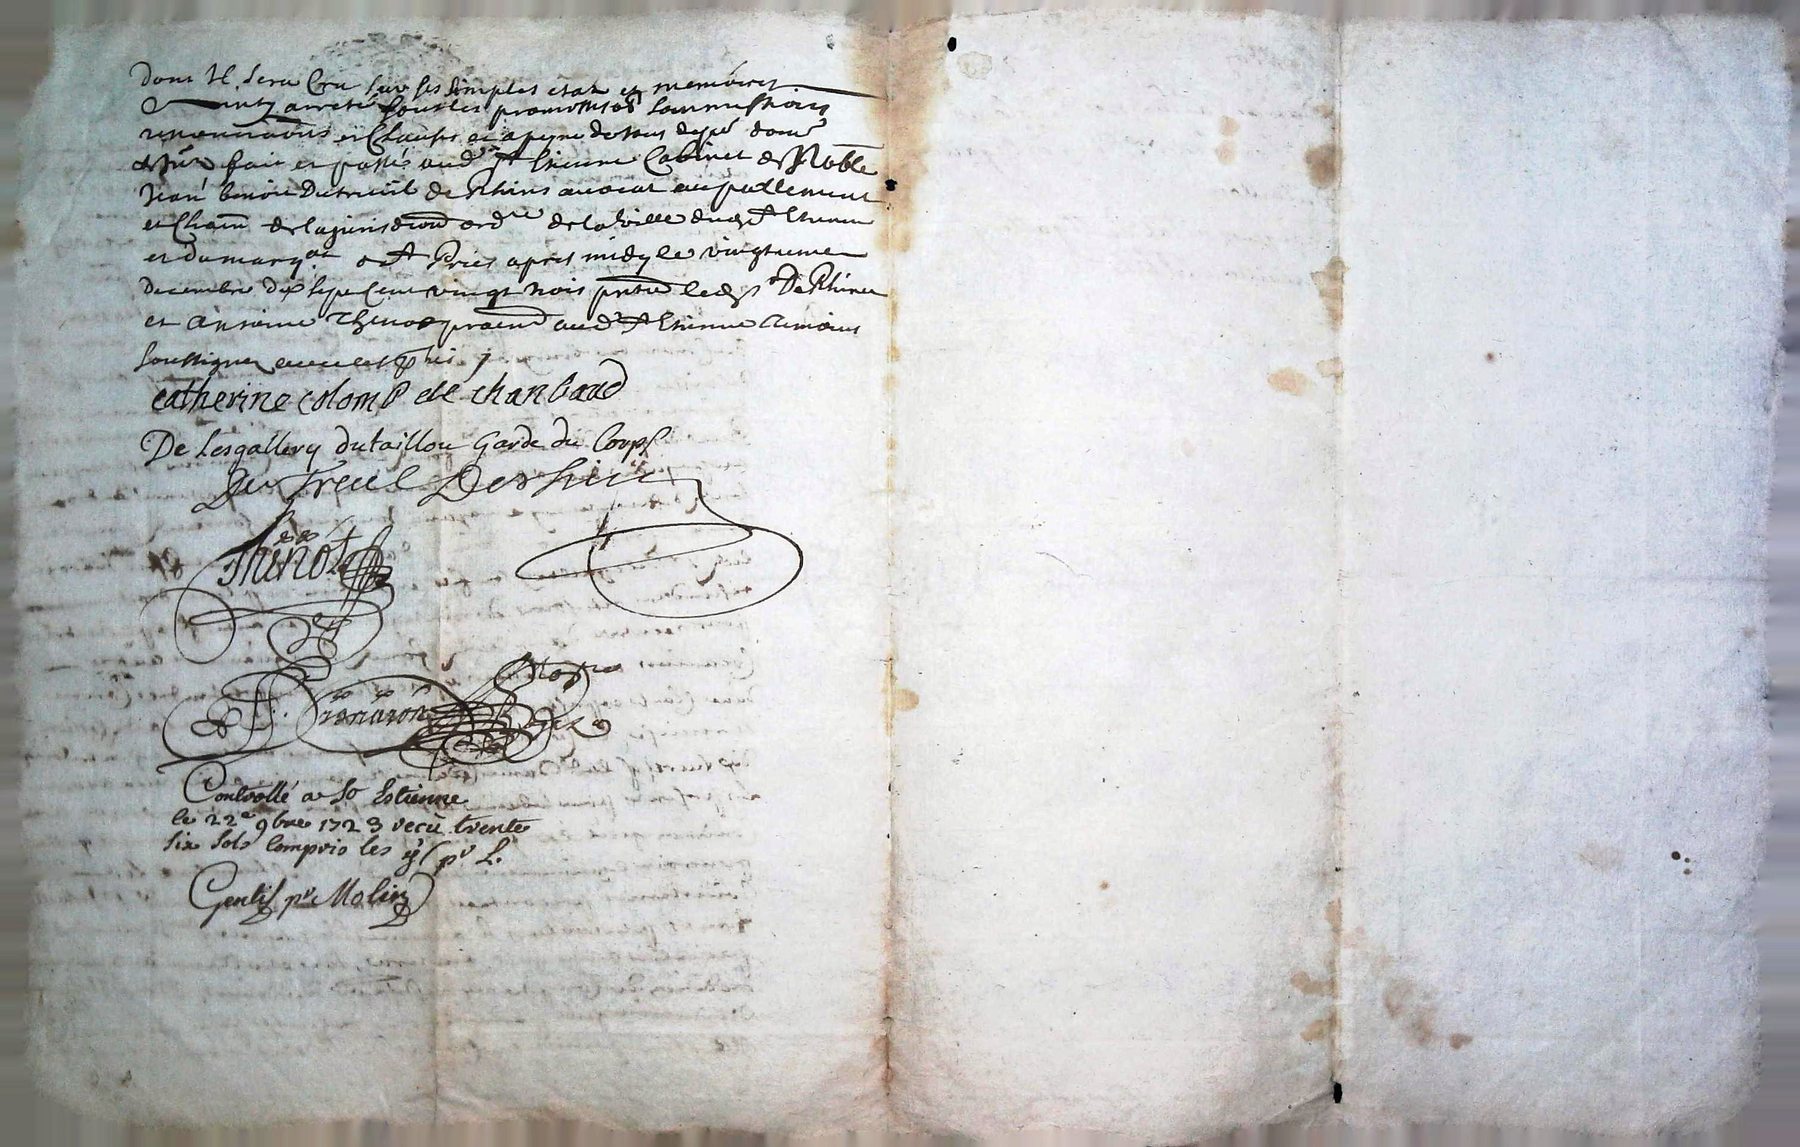 dont Il sera Cru sur ses simples état et memoires
arreté soubs les promesses soummissions
renonciaōns et Clauses et a peyne de tous depē dom̄
fait et passé aud St Etienne Cabinet de Noble
Jean benoit Dutreüil de Rhins avocat au parlement
et Cham de la jurisdiōn ordre de la Ville dud St Etienne
et du marqat de St Pries apres midy le vingt unme
decembre dix sept Cent vingt trois pntz led Sr De Rhins
et Antoine Thinot praend aud St Etienne temoins
soussignez avec les pties
catherine colomb de chanbaud
De Lesgallery dutaillou Garde du Corps
Du Treul De Rhins
Thinot
Grenaron Notre
Royal
Controllé a St Estienne
le 22e 9bre 1723 recü trente
six sols compris les 4s pr L.
Gentil pr Molin